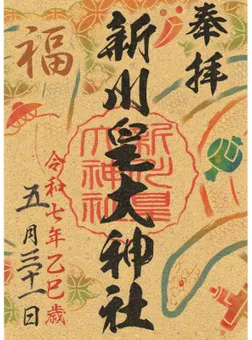 奉拝
新川皇大神社
新川皇
大神社
福
令和七年乙巳歳
五月三十一日